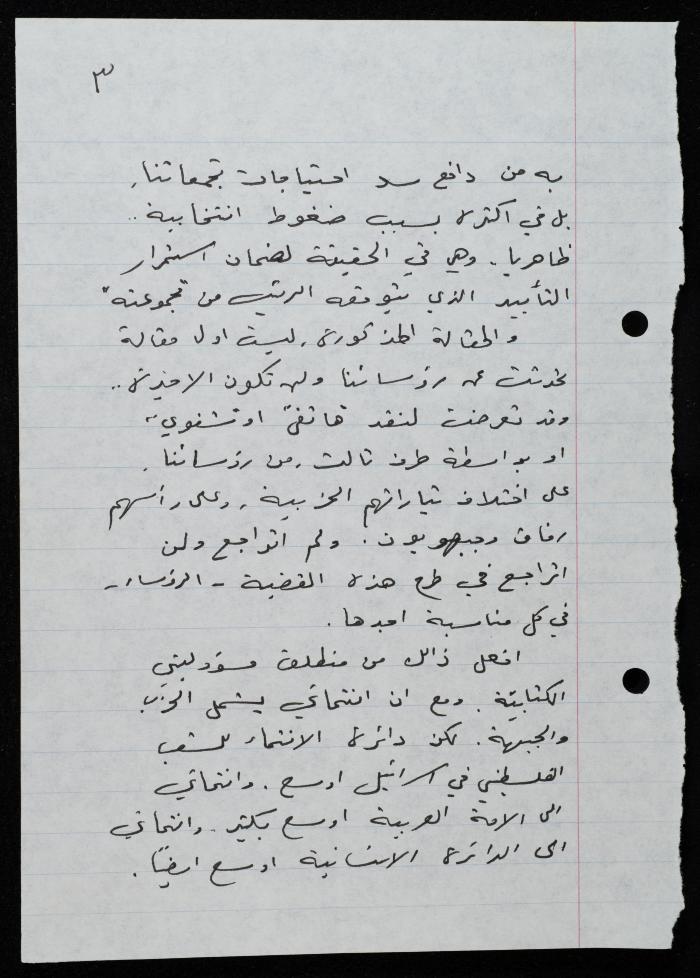 ٣
به من دافع سد احتياجات تجمعاتنا،
بل في اكثره بسبب ضغوط انتخابية ..
ظاهريا. وهي في الحقيقة لضمان استمرار
التأييد الذي يتوقعه الرئيس من "مجموعته"
والمقالة المذكورة، ليست اول مقالة
تحدثت عن رؤسائنا ولن تكون الاخيرة ..
وقد تعرضت لنقد "هاتفيّ" او "شفوي"
او بواسطة طرف ثالث، من رؤسائنا،
على اختلاف تياراتهم الحزبية، وعلى رأسهم
رفاق وجبهويون. ولم اتراجع ولن
اتراجع في طرح هذه القضية - الرؤساء -
في كل مناسبة اجدها.
افعل ذالك من منطلق مسؤوليتي
الكتابيّة. ومع ان انتمائي يشمل الحزب
والجبهة. لكن دائرة الانتماء للشعب
الفلسطيني في اسرائيل اوسع. وانتمائي
الى الامة العربية اوسع بكثير. وانتمائي
الى الدائرة الانسانية اوسع ايضًا.